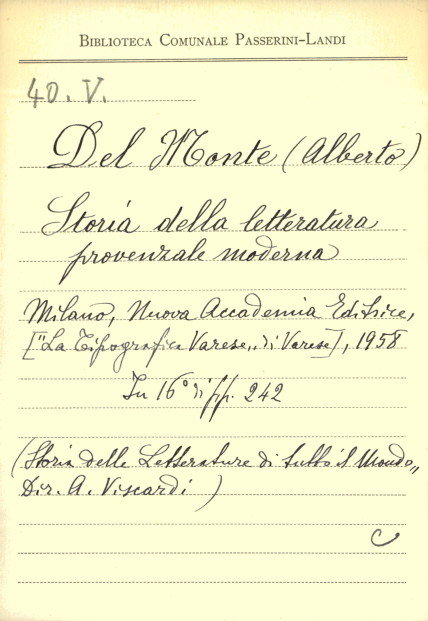 BIBLIOTECA COMUNALE PASSERINI-LANDI
40. V.
Del Monte (Alberto)
Storia della letteratura
provenzale moderna
Milano, Nuova Accademia Editrice,
["La Tipografica Varese„ di Varese], 1958
In 16° di pp. 242
(Storia delle Letterature di tutto il Mondo„
Dir. A. Viscardi)
C